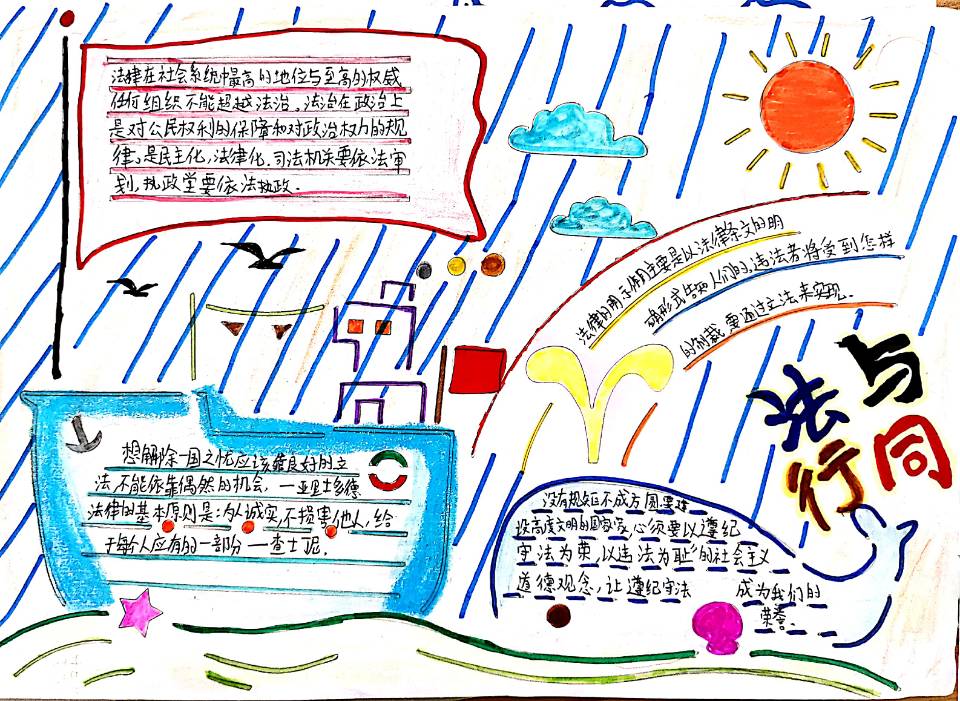 法律在社会系统中最高的地位与至高的权威
任何组织不能超越法治。法治在政治上
是对公民权利的保障和对政治权力的规
律。是民主化，法律化。司法机关要依法审
判，执政党要依法执政。
法律的明示作用主要是以法律条文的明
确形式告知人们的，违法者将受到怎样
的制裁，要通过立法来实现。
与
法
同
行
想解除一国之忧应该维良好的立
法，不能依靠偶然的机会，一亚里士多德
法律的基本原则是：为人诚实，不损害他人，给
予每个人应有的一部分一查士丁尼。
没有规矩不成方圆。要建
设高度文明的国家，必须要以遵纪
守法为荣，以违法为耻"的社会主义
道德观念，让遵纪守法 成为我们的
荣誉。